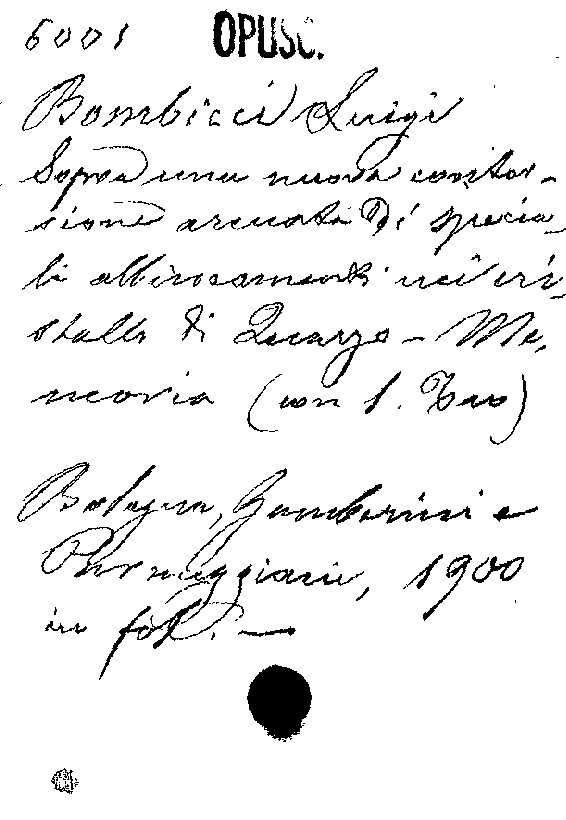 6001 OPUSC.
Bombicci Luigi
Sopra una nuova contor-
sione arcuata di specia-
li allineamenti nei cri-
stalli di Quarzo - Me-
moria (con 1. Tav)
Bologna, Gamberini e
Parmeggiani, 1900
in fol. —